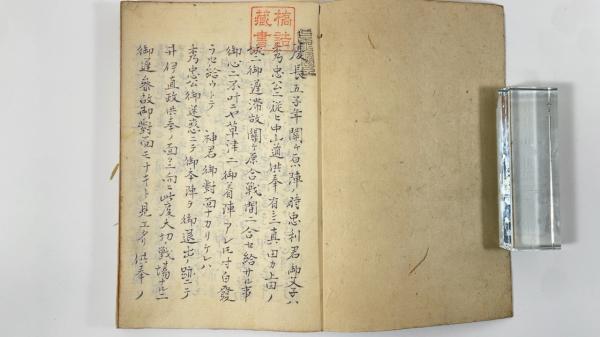 橋詰
藏書
慶長五子年関ヶ原陣ノ時忠利君御父子ハ
秀忠公ニ従ヒ中山道供奉有シニ真田カ上田ノ
城ニ御遅滞故関ヶ原合戦ノ間ニ合セ給サル事
御心ニ不叶ニヤ草津ニ御着陣アレ𪜈寸白発
ラセ給ウトテ 神君御對面ナカリケレハ
秀忠公御迷惑ニテ御本陣ヲ御退出ノ跡ニテ
井伊直政供奉ノ面々ニ向ヒ此度大切ノ戦場ナルニ
御遅参故御對面モナキト見エタリ供奉ノ